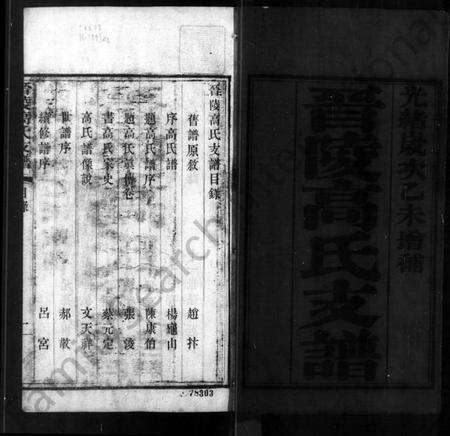 光緒歲次乙未增補
晉陵高氏支譜
晉陵高氏支譜目錄
舊譜原敘 趙抃
序高氏譜 楊龜山
題高氏譜序 陳康伯
題高氏 卷 張浚
書高氏家史 蔡元定
高氏譜系說 文天祥
譜序 郝敬
續修譜序 呂宮
目錄
一
78303